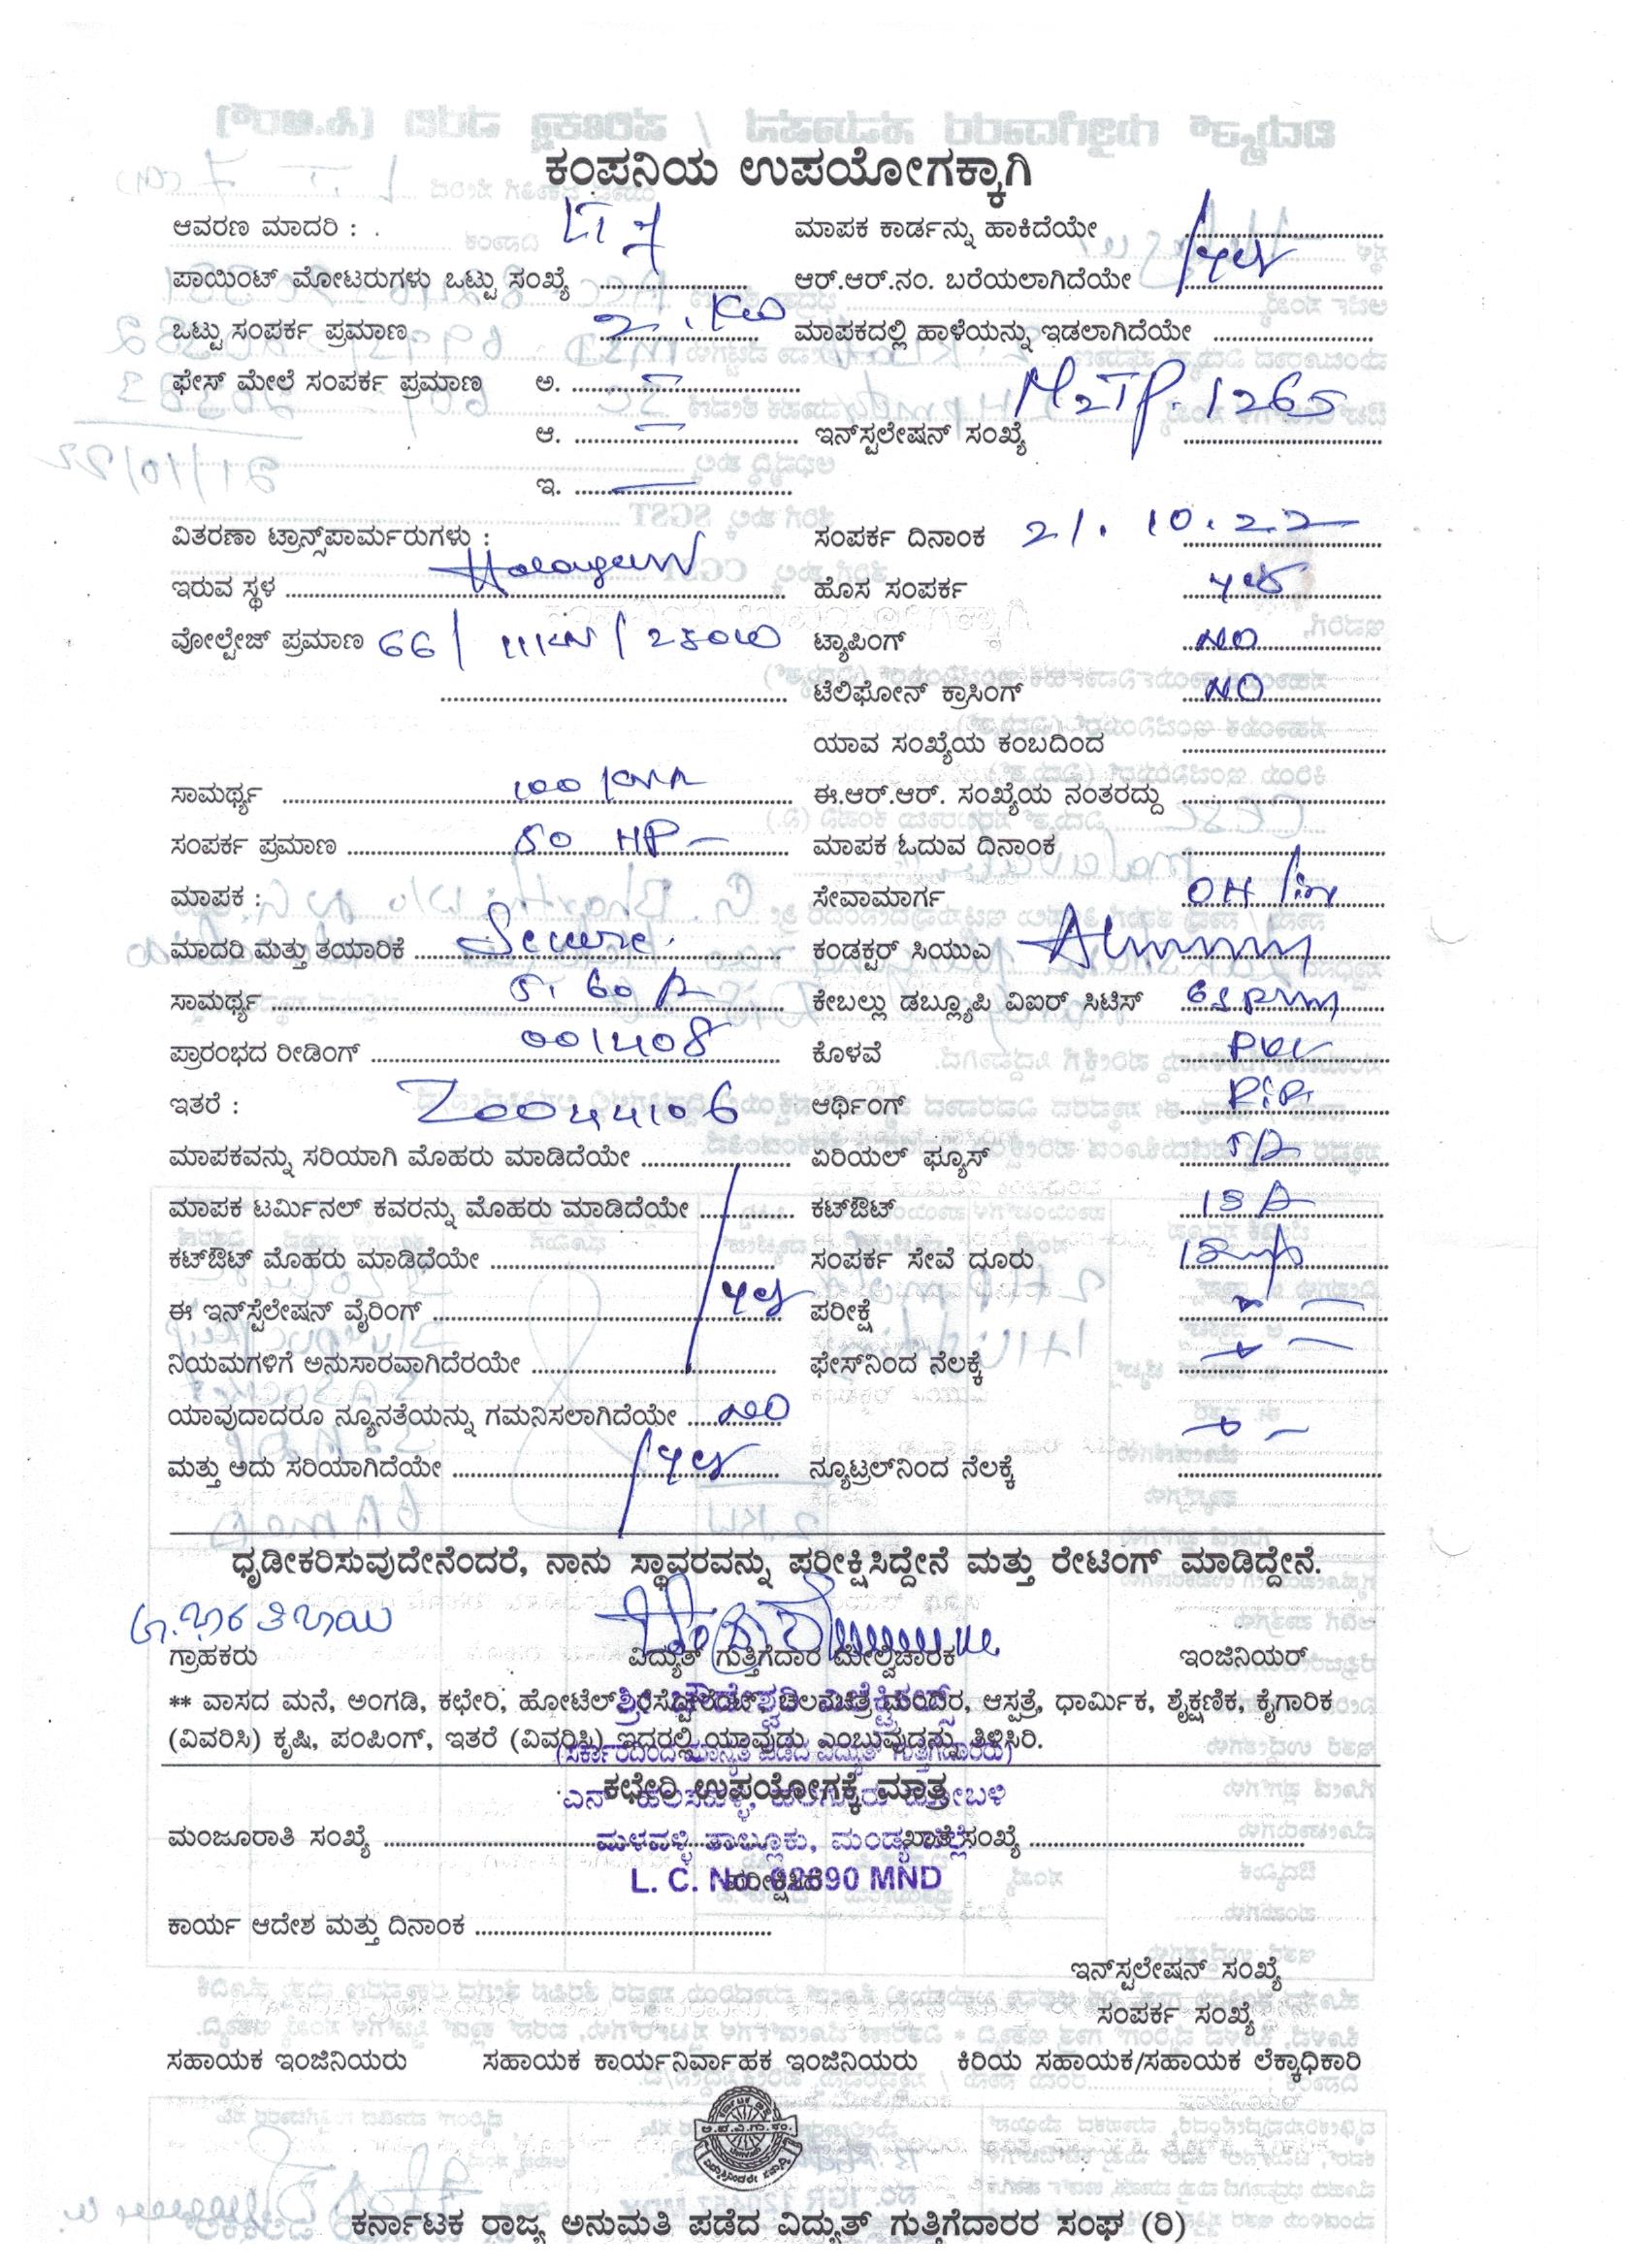 ಕಂಪನಿಯ ಉಪಯೋಗಕ್ಕಾಗಿ
ಆವರಣ ಮಾದರಿ : LT 7 ಮಾಪಕ ಕಾರ್ಡನ್ನು ಹಾಕಿದೆಯೇ
ಪಾಯಿಂಟ್ ಮೋಟರುಗಳು ಒಟ್ಟು ಸಂಖ್ಯೆ ಆರ್.ಆರ್.ನಂ. ಬರೆಯಲಾಗಿದೆಯೇ yes
ಒಟ್ಟು ಸಂಪರ್ಕ ಪ್ರಮಾಣ 2. KW ಮಾಪಕದಲ್ಲಿ ಹಾಳೆಯನ್ನು ಇಡಲಾಗಿದೆಯೇ
ಫೇಸ್ ಮೇಲೆ ಸಂಪರ್ಕ ಪ್ರಮಾಣ ಅ.
ಆ. ಇನ್‌ಸ್ಟಲೇಷನ್ ಸಂಖ್ಯೆ M2TP. 1265
ಇ.
ವಿತರಣಾ ಟ್ರಾನ್ಸ್‌ಪಾರ್ಮರುಗಳು : ಸಂಪರ್ಕ ದಿನಾಂಕ 21. 10. 22
ಇರುವ ಸ್ಥಳ ಹೊಸ ಸಂಪರ್ಕ yes
ವೋಲ್ಟೇಜ್ ಪ್ರಮಾಣ 66 / 11KV / ಟ್ಯಾಪಿಂಗ್ NO
ಟೆಲಿಫೋನ್ ಕ್ರಾಸಿಂಗ್ NO
ಯಾವ ಸಂಖ್ಯೆಯ ಕಂಬದಿಂದ
ಸಾಮರ್ಥ್ಯ 100 KVA ಈ.ಆರ್.ಆರ್. ಸಂಖ್ಯೆಯ ನಂತರದ್ದು
ಸಂಪರ್ಕ ಪ್ರಮಾಣ 80 HP ಮಾಪಕ ಓದುವ ದಿನಾಂಕ
ಮಾಪಕ : ಸೇವಾಮಾರ್ಗ OH line
ಮಾದರಿ ಮತ್ತು ತಯಾರಿಕೆ Secure. ಕಂಡಕ್ಟರ್ ಸಿಯುಎ
ಸಾಮರ್ಥ್ಯ 5. 60 A ಕೇಬಲ್ಲು ಡಬ್ಲ್ಯೂಪಿ ವಿಐರ್ ಸಿಟಿಸ್
ಪ್ರಾರಂಭದ ರೀಡಿಂಗ್ 001408 ಕೊಳವೆ PVC
ಇತರೆ : Z0044106 ಆರ್ಥಿಂಗ್
ಮಾಪಕವನ್ನು ಸರಿಯಾಗಿ ಮೊಹರು ಮಾಡಿದೆಯೇ ಏರಿಯಲ್ ಫ್ಯೂಸ್ 5A
ಮಾಪಕ ಟರ್ಮಿನಲ್ ಕವರನ್ನು ಮೊಹರು ಮಾಡಿದೆಯೇ ಕಟ್‌ಔಟ್ 15 A
ಕಟ್‌ಔಟ್ ಮೊಹರು ಮಾಡಿದೆಯೇ ಸಂಪರ್ಕ ಸೇವೆ ದೂರು
ಈ ಇನ್‌ಸ್ಟೆಲೇಷನ್ ವೈರಿಂಗ್ yes ಪರೀಕ್ಷೆ
ನಿಯಮಗಳಿಗೆ ಅನುಸಾರವಾಗಿದೆರಯೇ ಫೇಸ್‌ನಿಂದ ನೆಲಕ್ಕೆ
ಯಾವುದಾದರೂ ನ್ಯೂನತೆಯನ್ನು ಗಮನಿಸಲಾಗಿದೆಯೇ NO
ಮತ್ತು ಅದು ಸರಿಯಾಗಿದೆಯೇ yes ನ್ಯೂಟ್ರಲ್‌ನಿಂದ ನೆಲಕ್ಕೆ
ಧೃಡೀಕರಿಸುವುದೇನೆಂದರೆ, ನಾನು ಸ್ಥಾವರವನ್ನು ಪರೀಕ್ಷಿಸಿದ್ದೇನೆ ಮತ್ತು ರೇಟಿಂಗ್ ಮಾಡಿದ್ದೇನೆ.
ಗ್ರಾಹಕರು ವಿದ್ಯುತ್ ಗುತ್ತಿಗೆದಾರ ಮೇಲ್ವಿಚಾರಕ ಇಂಜಿನಿಯರ್
** ವಾಸದ ಮನೆ, ಅಂಗಡಿ, ಕಛೇರಿ, ಹೋಟೆಲ್ ರೆಸ್ಟೋರೆಂಟ್, ಚಲನಚಿತ್ರ ಮಂದಿರ, ಆಸ್ಪತ್ರೆ, ಧಾರ್ಮಿಕ, ಶೈಕ್ಷಣಿಕ, ಕೈಗಾರಿಕ
(ವಿವರಿಸಿ) ಕೃಷಿ, ಪಂಪಿಂಗ್, ಇತರೆ (ವಿವರಿಸಿ) ಇದರಲ್ಲಿ ಯಾವುದು ಎಂಬುವುದನ್ನು ತಿಳಿಸಿರಿ.
(ಸರ್ಕಾರದಿಂದ ಮಾನ್ಯತೆ ಪಡೆದ ವಿದ್ಯುತ್ ಗುತ್ತಿಗೆದಾರರು)
ಕಛೇರಿ ಉಪಯೋಗಕ್ಕೆ ಮಾತ್ರ
ಮಂಜೂರಾತಿ ಸಂಖ್ಯೆ ಖಾತೆ ಸಂಖ್ಯೆ
ಮಳವಳ್ಳಿ ತಾಲ್ಲೂಕು, ಮಂಡ್ಯ ಜಿಲ್ಲೆ
ಪರೀಕ್ಷಿಸಿದೆ
ಕಾರ್ಯ ಆದೇಶ ಮತ್ತು ದಿನಾಂಕ
ಇನ್‌ಸ್ಟಲೇಷನ್ ಸಂಖ್ಯೆ
ಸಂಪರ್ಕ ಸಂಖ್ಯೆ
ಸಹಾಯಕ ಇಂಜಿನಿಯರು ಸಹಾಯಕ ಕಾರ್ಯನಿರ್ವಾಹಕ ಇಂಜಿನಿಯರು ಕಿರಿಯ ಸಹಾಯಕ/ಸಹಾಯಕ ಲೆಕ್ಕಾಧಿಕಾರಿ
ಕರ್ನಾಟಕ ರಾಜ್ಯ ಅನುಮತಿ ಪಡೆದ ವಿದ್ಯುತ್ ಗುತ್ತಿಗೆದಾರರ ಸಂಘ (ರಿ)